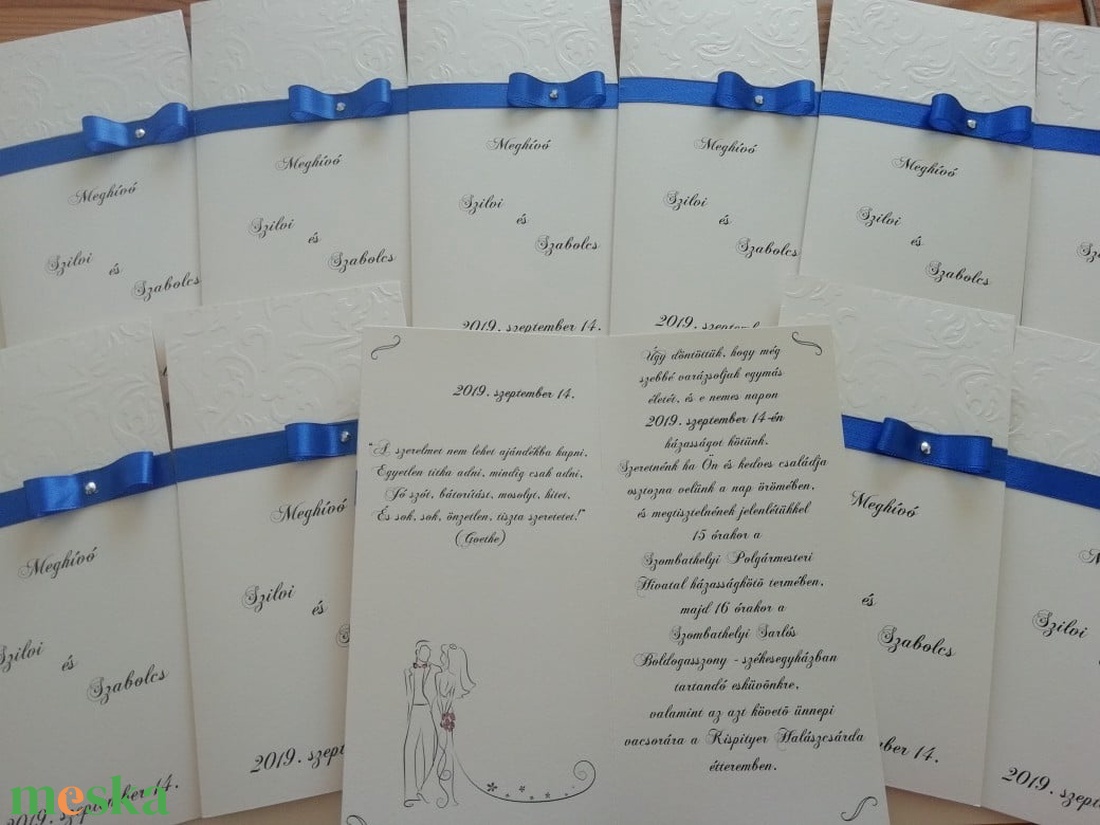 Meghívó
Szilvi
és
Szabolcs
Meghívó
Szilvi
és
Szabolcs
Meghívó
Szilvi
és
Szabolcs
2019. szeptember 14.
Meghívó
Szilvi
és
Szabolcs
2019.
Meghívó
Szilvi
és
Szabolcs
Meghívó
Szilvi
és
Szabolcs
szeptember 14.
Meghívó
Szilvi
és
2019.
2019. szeptember 14.
"A szerelmet nem lehet ajándékba kapni,
Egyetlen titka adni, mindig csak adni,
Jó szót, bátorítást, mosolyt, hitet,
És sok, sok, önzetlen, tiszta szeretetet!"
(Goethe)
Úgy döntöttük, hogy még
szebbé varázsoljuk egymás
életét, és e nemes napon
2019. szeptember 14-én
házasságot kötünk.
Szeretnénk ha Ön és kedves családja
osztozna velünk a nap örömében,
és megtisztelnének jelenlétükkel
15 órakor a
Szombathelyi Polgármesteri
Hivatal házasságkötő termében,
majd 16 órakor a
Szombathelyi Sarlós
Boldogasszony - székesegyházban
tartandó esküvőnkre,
valamint az azt követő ünnepi
vacsorára a Kispityer Halászcsárda
étteremben.
Meghívó
és
Szabolcs
14.
Szilvi
2019.
meska